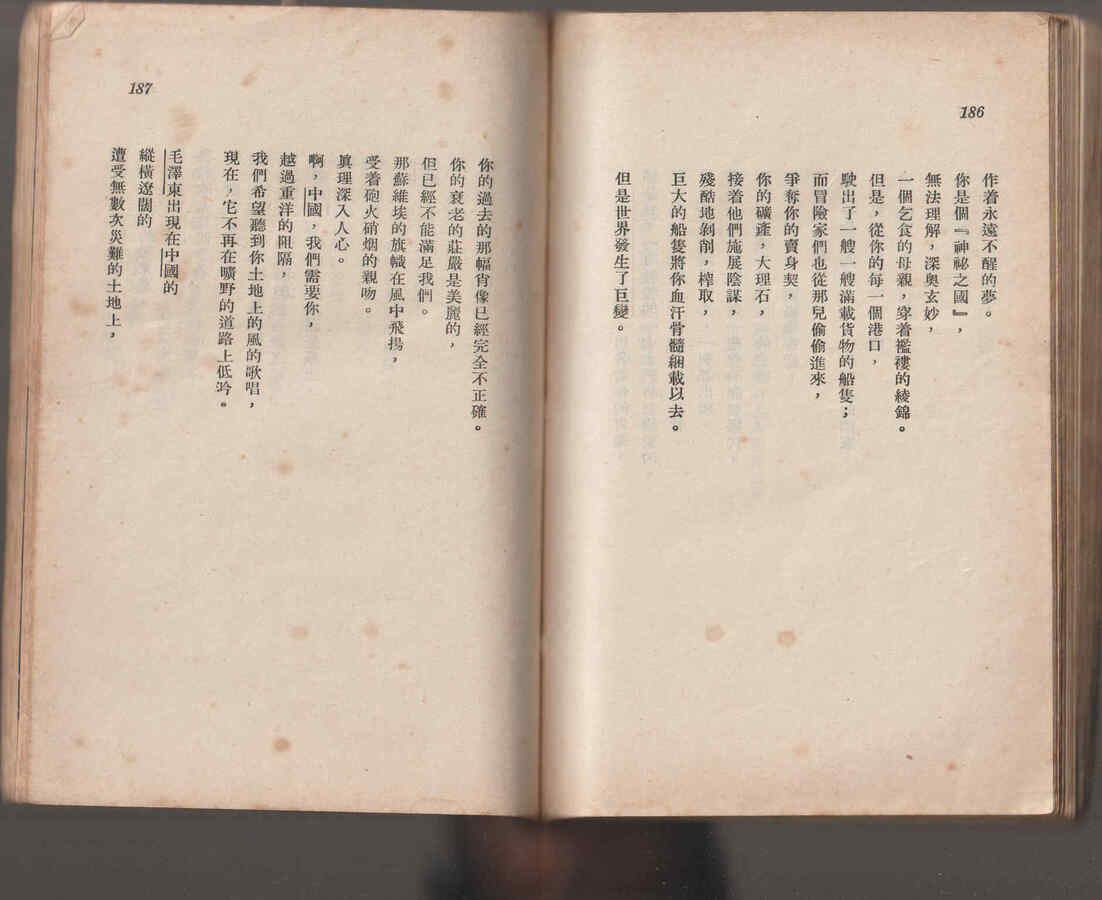 186
作着永遠不醒的夢。
你是個『神祕之國』，
無法理解，深奥玄妙，
一個乞食的母親，穿着襤褸的綾錦。
但是，從你的每一個港口，
駛出了一艘一艘滿載貨物的船隻；
而冒險家們也從那兒偷偷進來，
爭奪你的賣身契，
你的礦產，大理石，
接着他們施展陰謀，
殘酷地剝削，榨取，
巨大的船隻將你血汗骨髓綑載以去。
但是世界發生了巨變。
187
你的過去的那幅肖像已經完全不正確。
你的衰老的莊嚴是美麗的，
但已經不能滿足我們。
那蘇維埃的旗幟在風中飛揚，
受着砲火硝烟的親吻。
眞理深入人心。
啊，中國，我們需要你，
越過重洋的阻隔，
我們希望聽到你土地上的風的歌唱，
現在，它不再在曠野的道路上低吟。
毛澤東出現在中國的
縱橫遼闊的
遭受無數次災難的土地上，